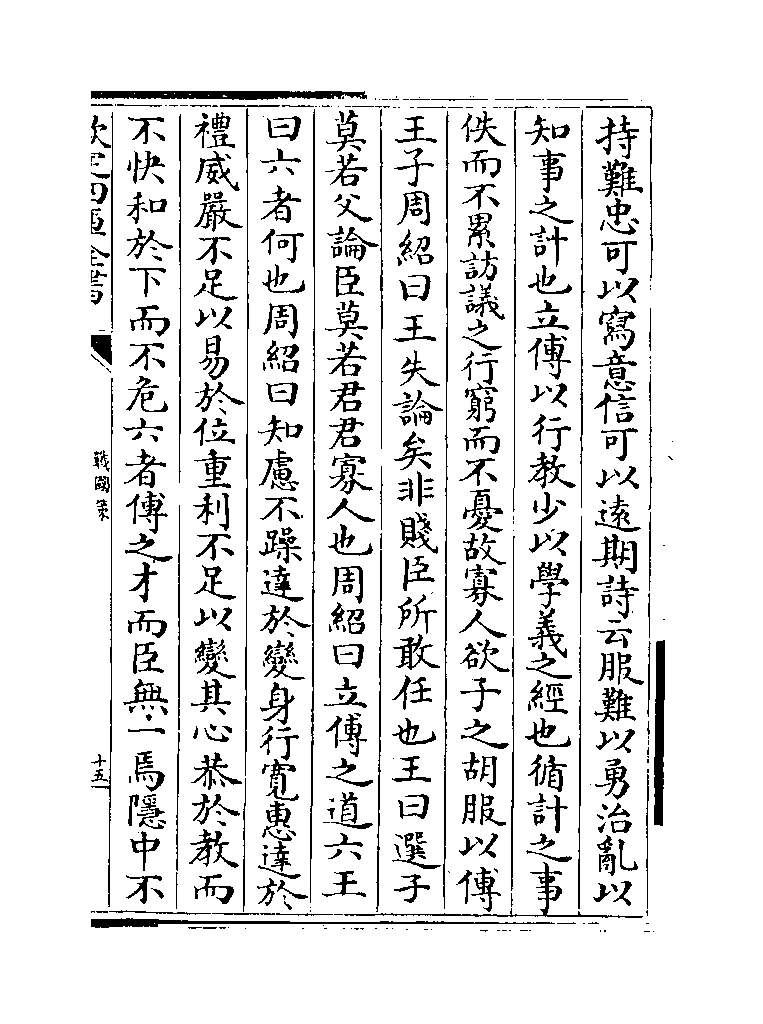 持難忠可以寫意信可以遠期詩云服難以勇治亂以
知事之計也立傅以行教少以學義之經也循計之事
佚而不累訪議之行窮而不憂故寡人欲子之胡服以傅
王子周紹曰王失論矣非賤臣所敢任也王曰選子
莫若父論臣莫若君君寡人也周紹曰立傅之道六王
曰六者何也周紹曰知慮不躁達於變身行寬惠達於
禮威嚴不足以易於位重利不足以變其心恭於教而
不快和於下而不危六者傅之才而臣無一焉隱中不
欽定四庫全書
戰國策
十五